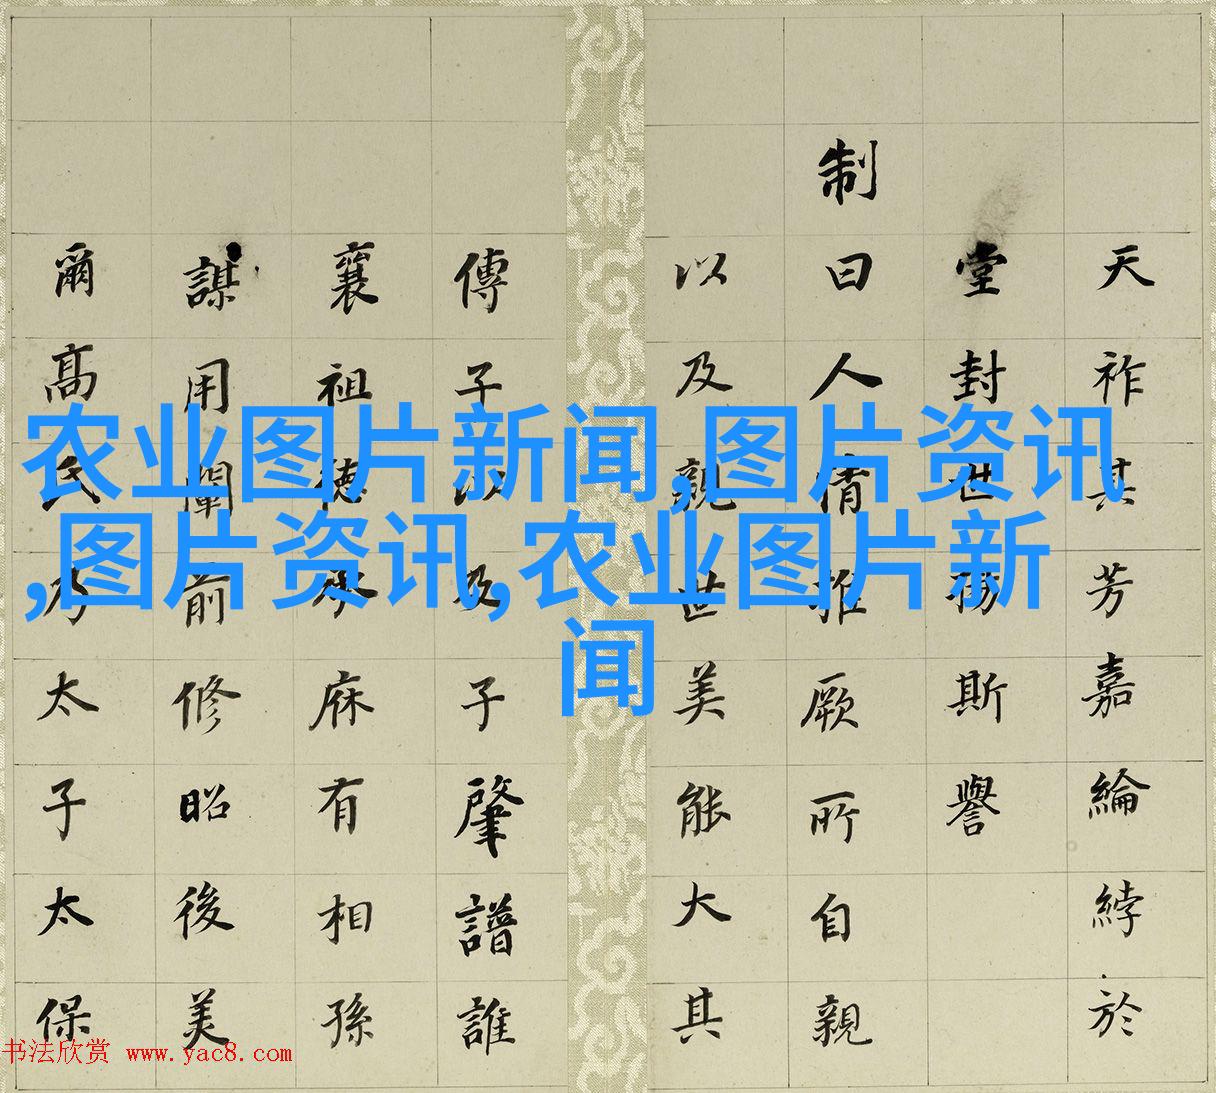 天祚其芳嘉綸綍於
堂封世揚斯譽
制曰人情推厥所自親
以及親世美能大其
傳子以及子肇譜誰
襄祖德承庥有相孫
謀用闡前修昭後美
爾高氏乃太子太保
农业图片新闻,图片资讯
,图片资讯,农业图片新
闻
书法欣赏 www.yac8.com